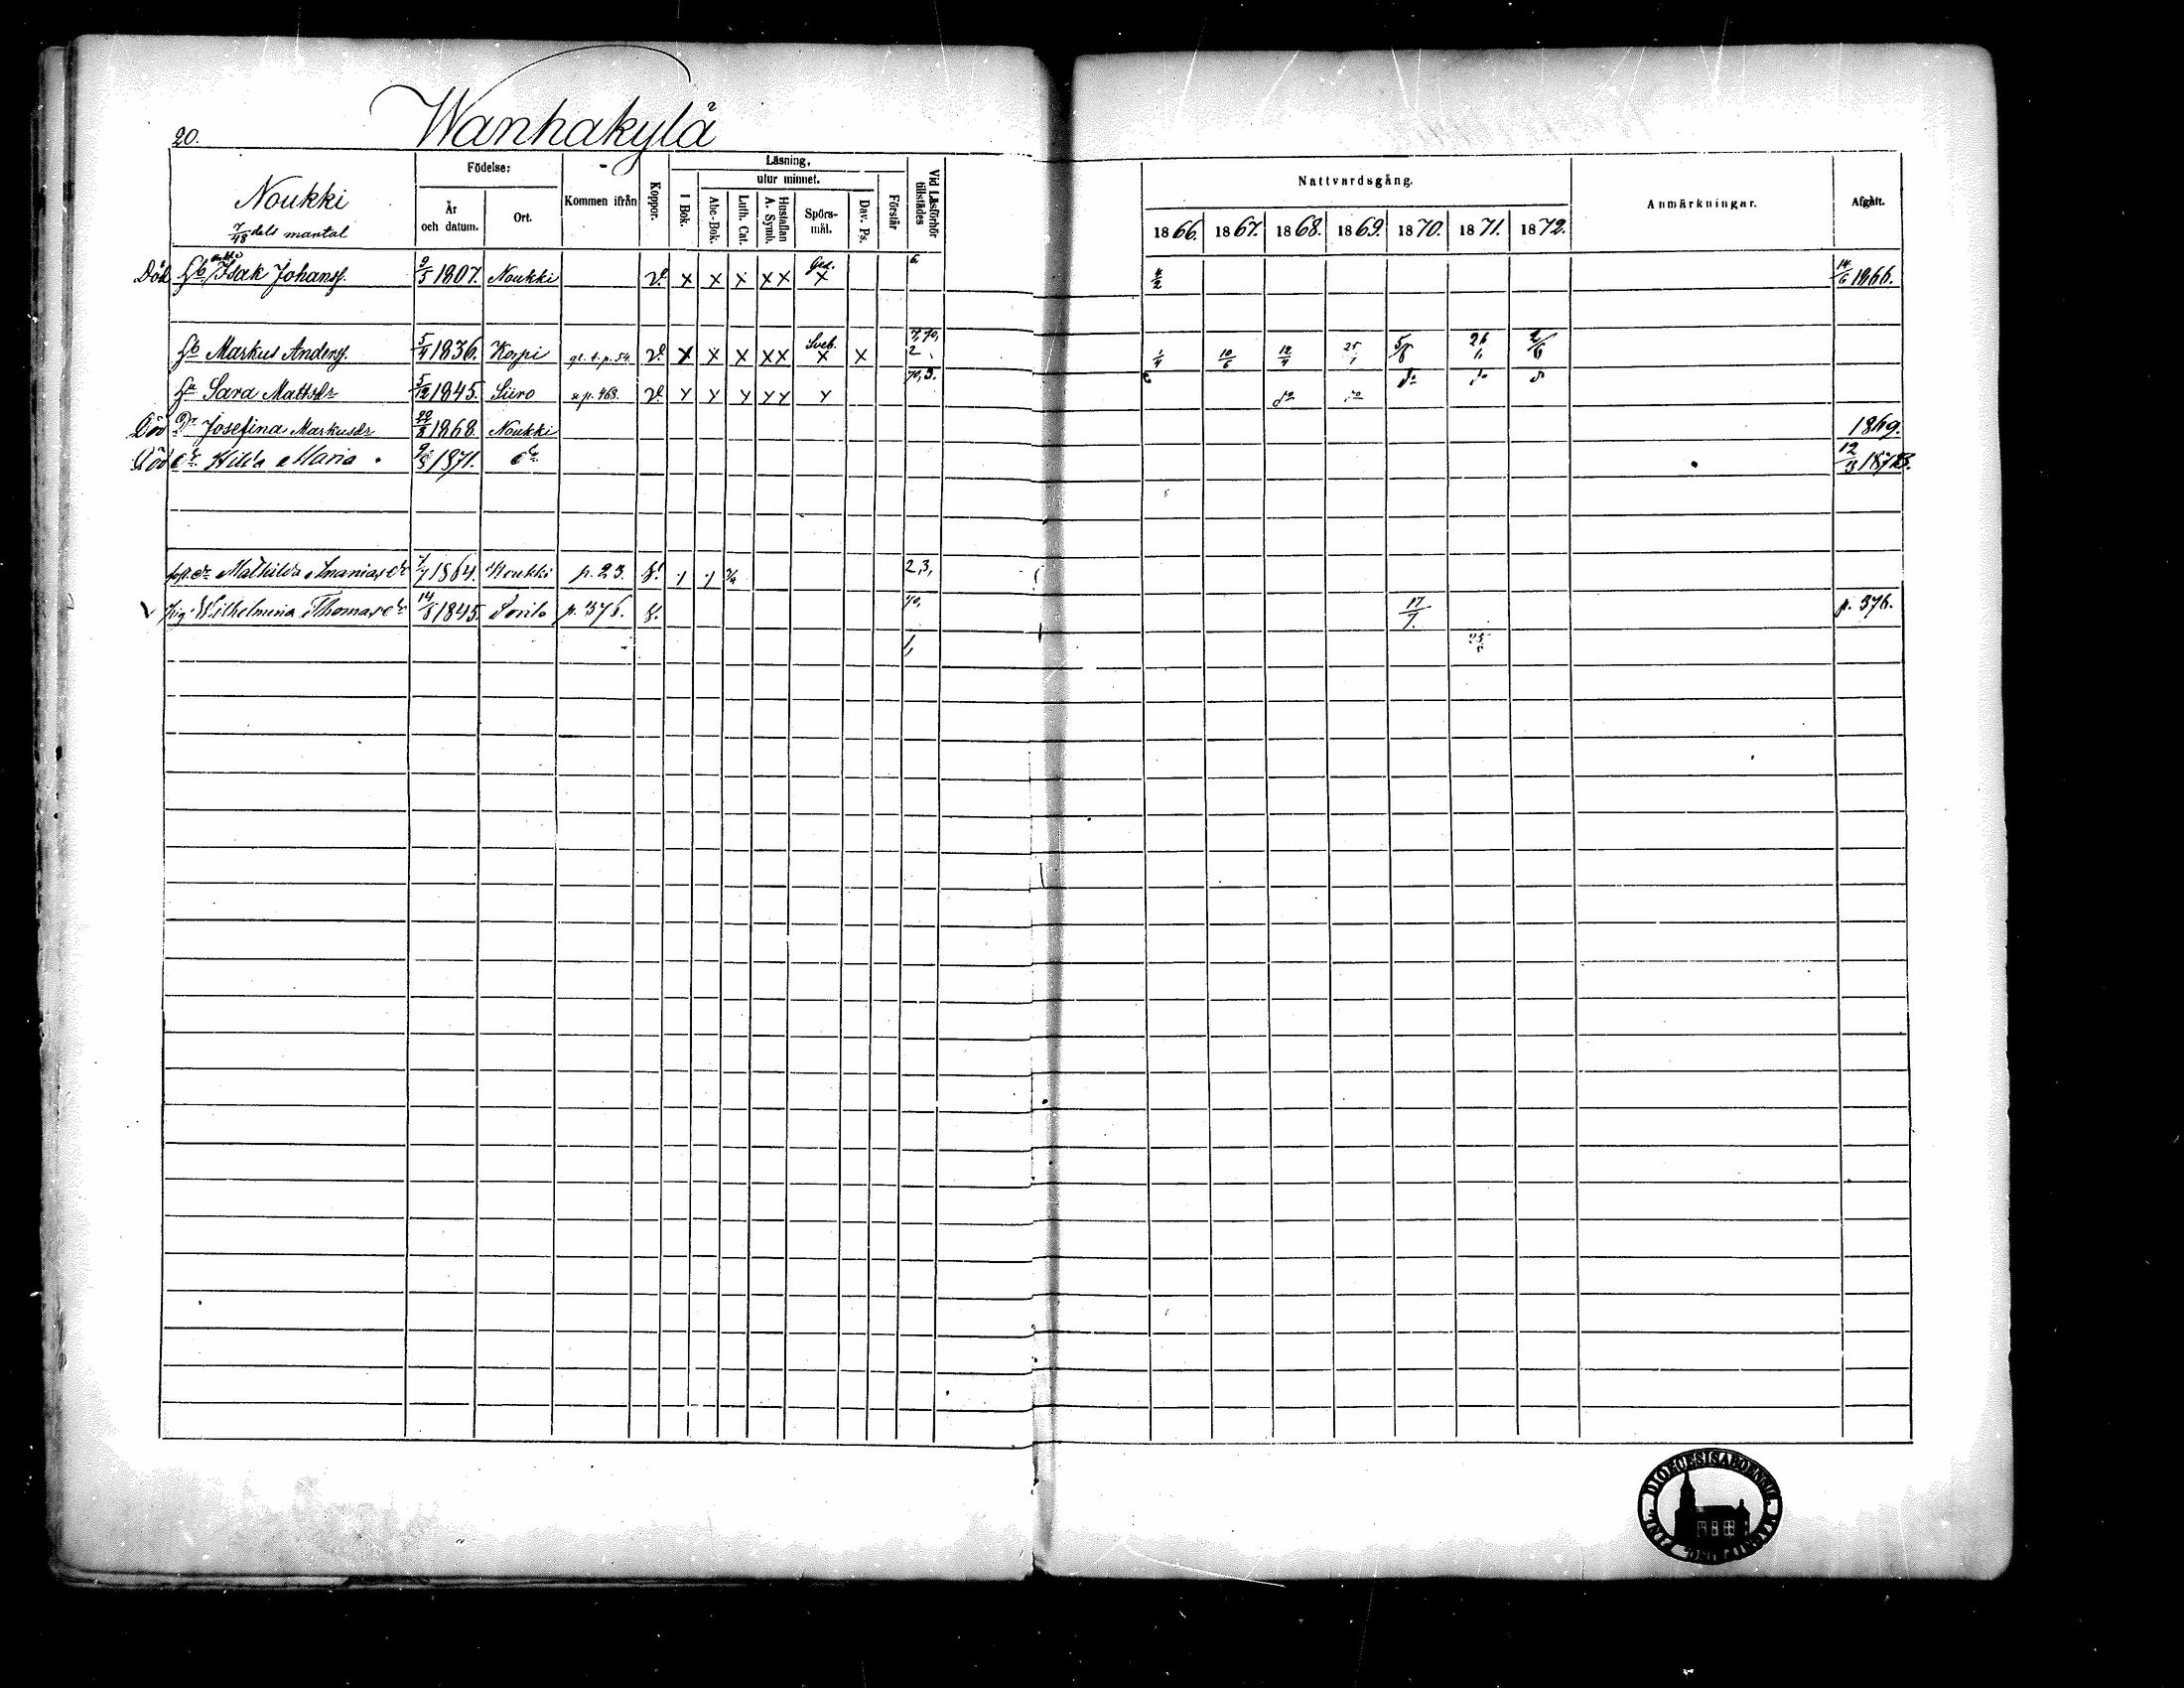 20.
Wanhakylä
Noukki
7/48 dels mantal
Födelse:
År och datum.
Ort.
Kommen ifrån
Koppor.
Läsning,
I Bok.
utur minnet.
Abc-Bok.
Luth. Cat.
Hustaflan A. Symb.
Spörs-mål.
Dav. Ps.
Förstår
Vid Läsförhör tillstädes
Nattvardsgång.
1866. 1867. 1868. 1869. 1870. 1871. 1872.
Anmärkningar.
Afgått.
Död Hb Isak Johanss. 9/5 1807. Noukki v. x x x x x Ged. x 6 14/6 1866.
Hb Markus Anderss. 5/4 1836. Korpi gl. b. p. 54. v. x x x x x Sveb. x x 7, 70, 2 1/4 10/6 12/4 5/6
Hu Sara Mattsdr 5/12 1845. Siiro p. 468. v. x x x x x x 70, 3. do do do do
Död Dr Josefina Markusdr 1868. Noukki 1869.
Död dr Hilda Maria 9/3 1871. do 12/3 1873.
Mathilda Ananiasdr 1864. Noukki p. 23. 2, 3,
Pig. Wilhelmina Thomasdr 14/8 1845. p. 376. 70, 17/7. p. 376.
1,